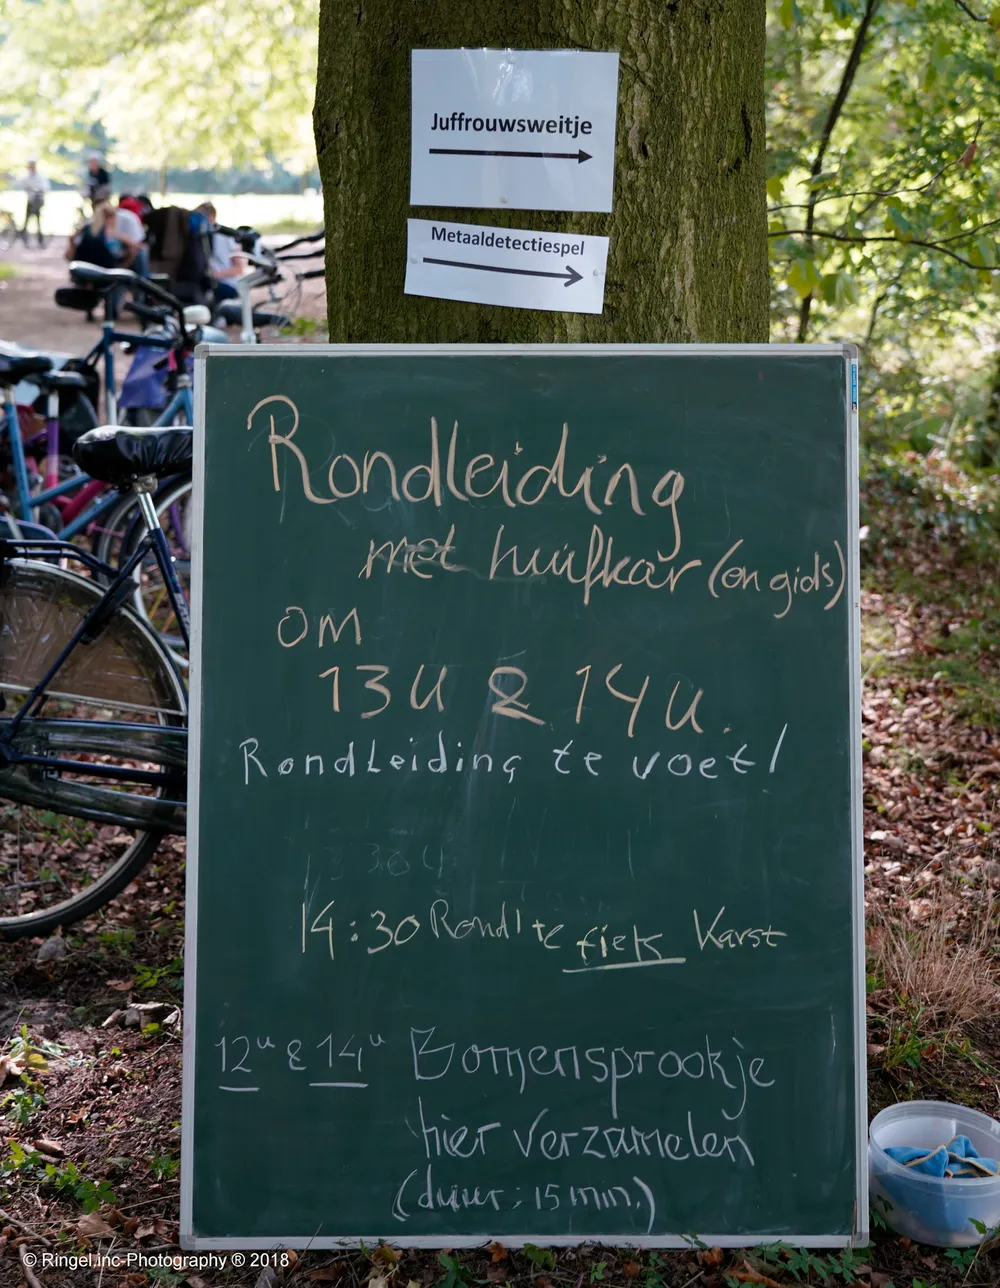 Juffrouwsweitje
Metaaldetectiespel
Rondleiding
met huifkar (en gids)
om
13u & 14u.
Rondleiding te voet!
14:30 Rondl te fiets Karst
12u & 14u Bomensprookje
hier verzamelen
(duur: 15 min.)
© Ringel.inc-Photography ® 2018